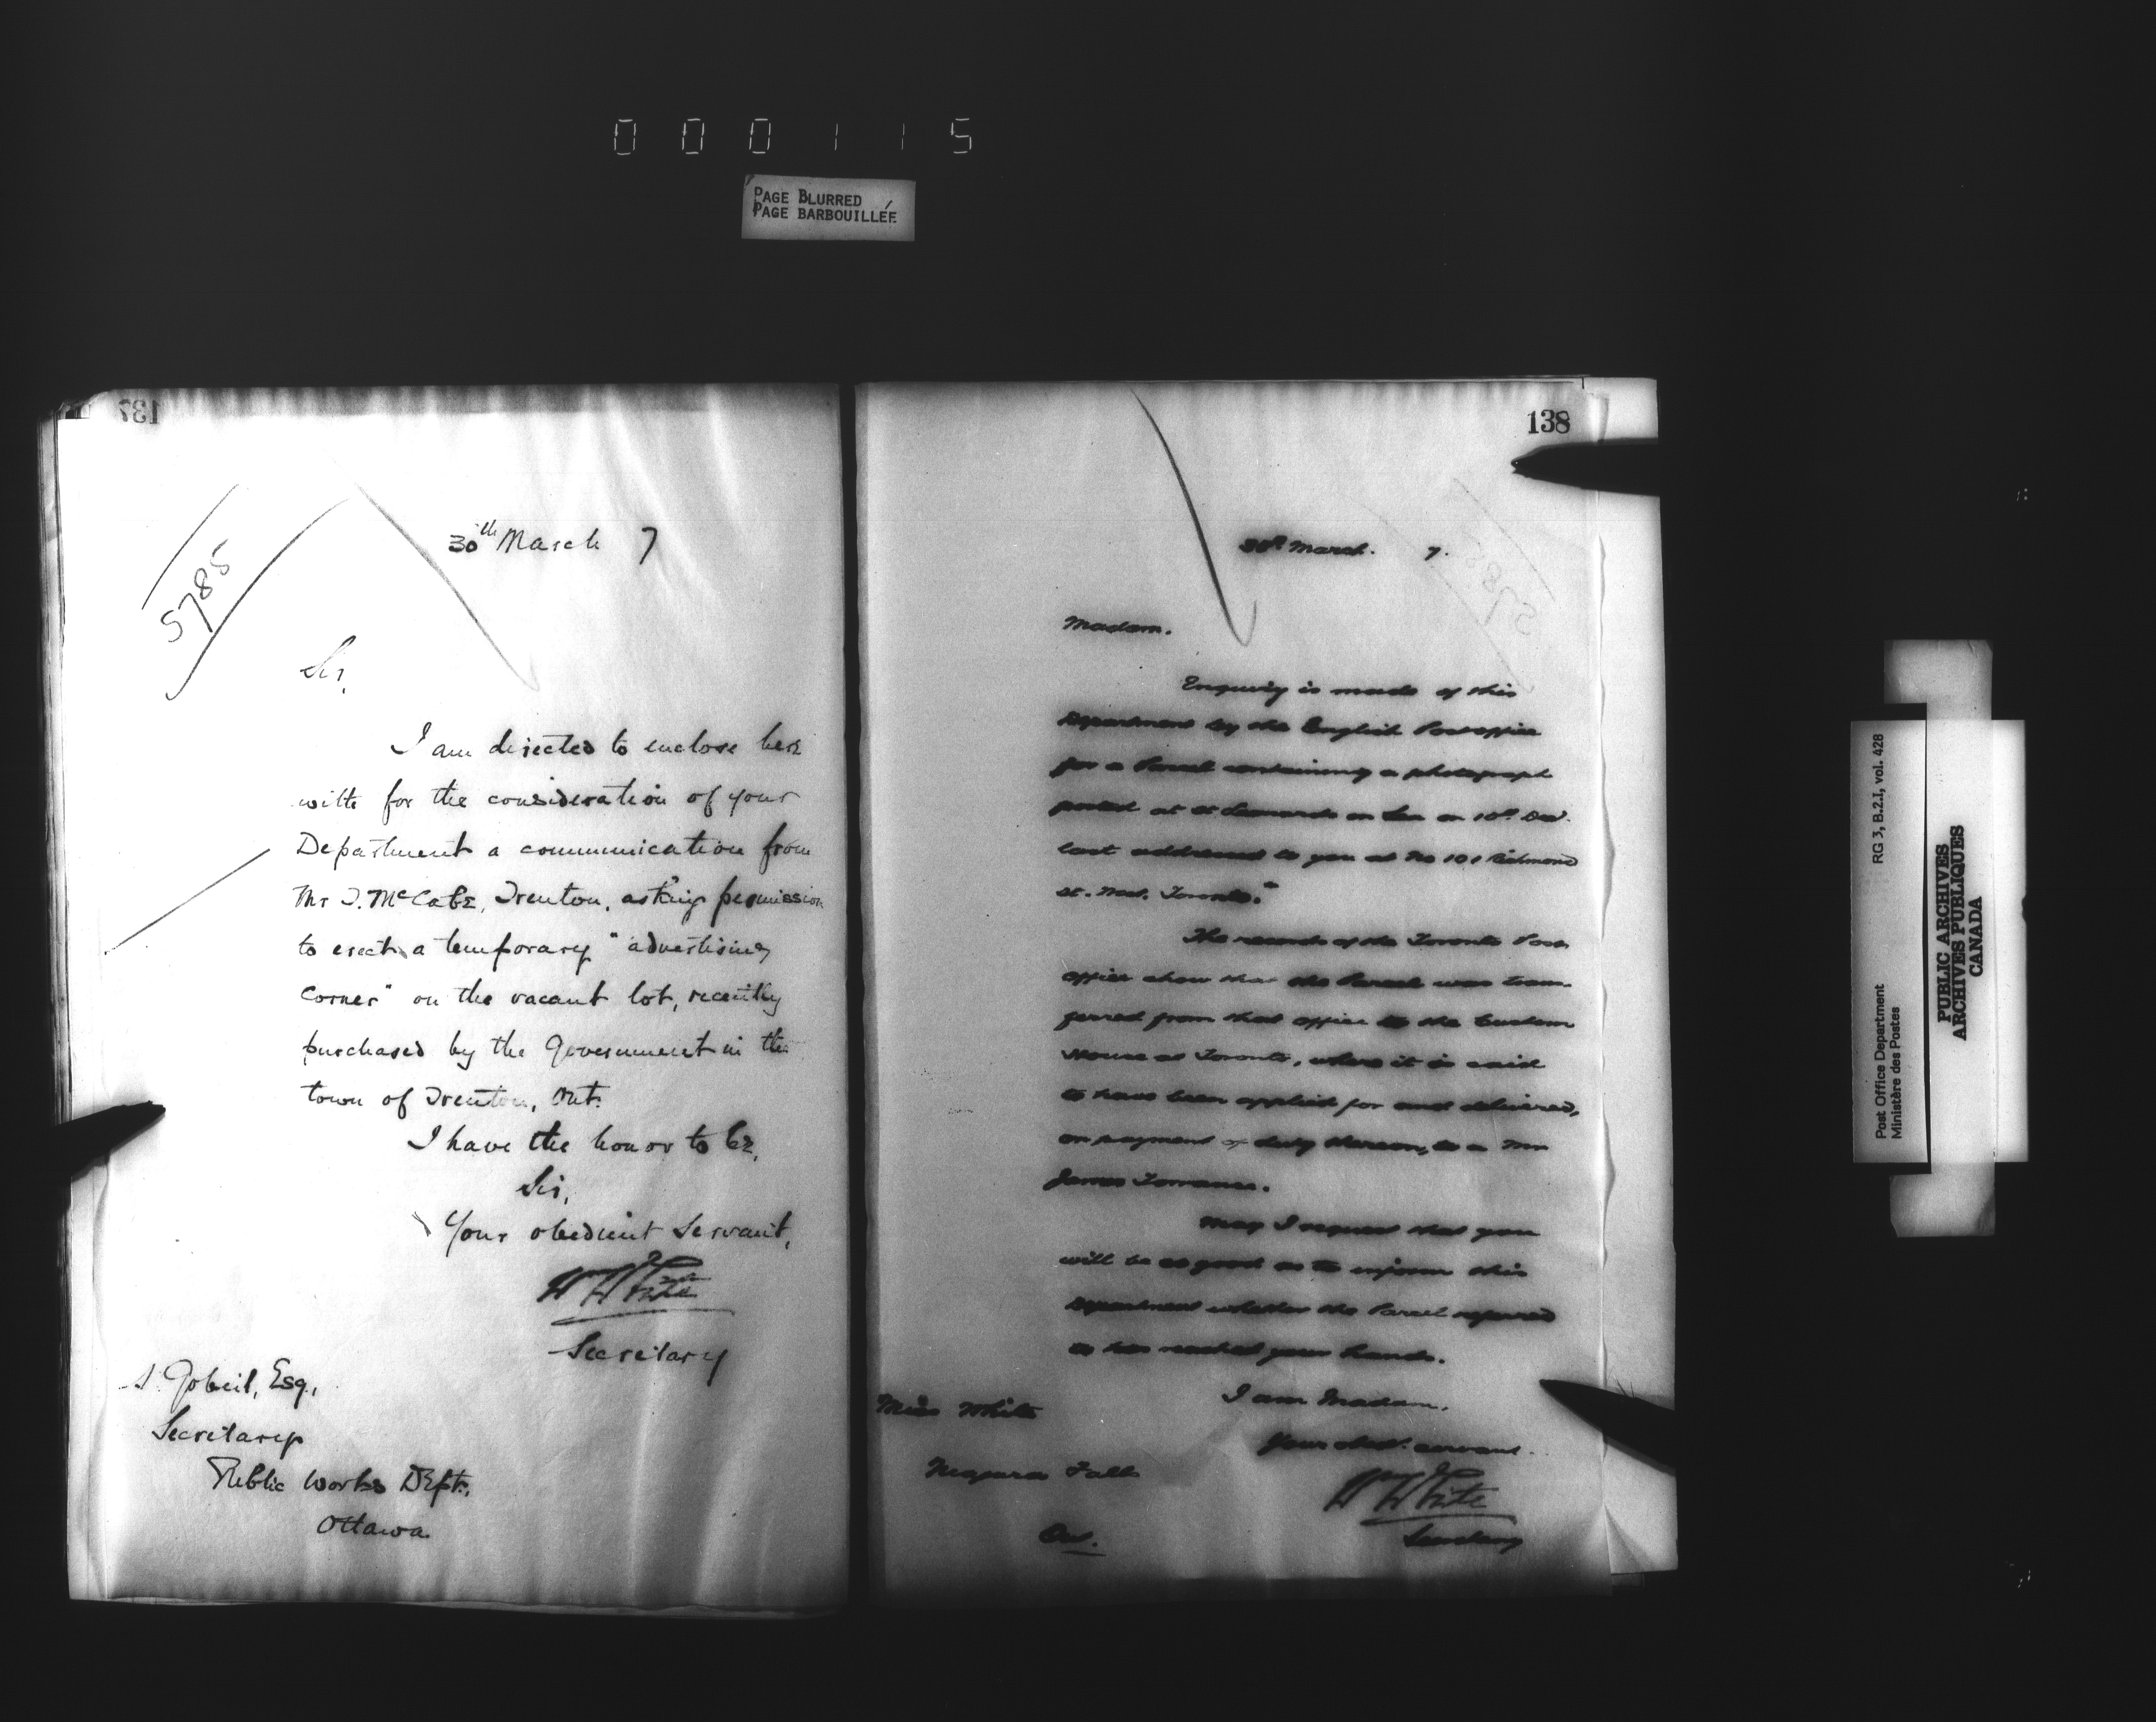 000115
PAGE BLURRED
PAGE BARBOUILLÉE
137
5785
30th March 7
Sir,
I am directed to enclose here
with for the consideration of your
Department a communication from
Mr T. McCabe, Trenton, asking permission
to erect a temporary "advertising
corner" on the vacant lot, recently
purchased by the Government in the
town of Trenton, Ont.
I have the honor to be,
Sir,
Your obedient Servant,
WWhite
Secretary
A. Gobeil, Esq.,
Secretary
Public Works Dept.,
Ottawa
138
30th March. 7.
Madam.
Enquiry is made of this
Department by the English Post office
for a Parcel containing a photograph
posted at St Leonards on Sea on 10th Decr.
last addressed to you at No 101 Richmond
St. West, Toronto.
The records of the Toronto Post
office show that the Parcel was trans-
ferred from that office to the Custom
House at Toronto, where it is said
to have been applied for and delivered,
on payment of duty thereon, to a Mr
James Torrance.
May I request that you
will be so good as to inform this
Department whether the Parcel referred
to has reached your hands.
I am Madam.
Your obdt. servant.
WWhite
Secretary
Miss White
Niagara Falls
Ont.
Post Office Department RG 3, B.2.I, vol. 428
Ministère des Postes
PUBLIC ARCHIVES
ARCHIVES PUBLIQUES
CANADA